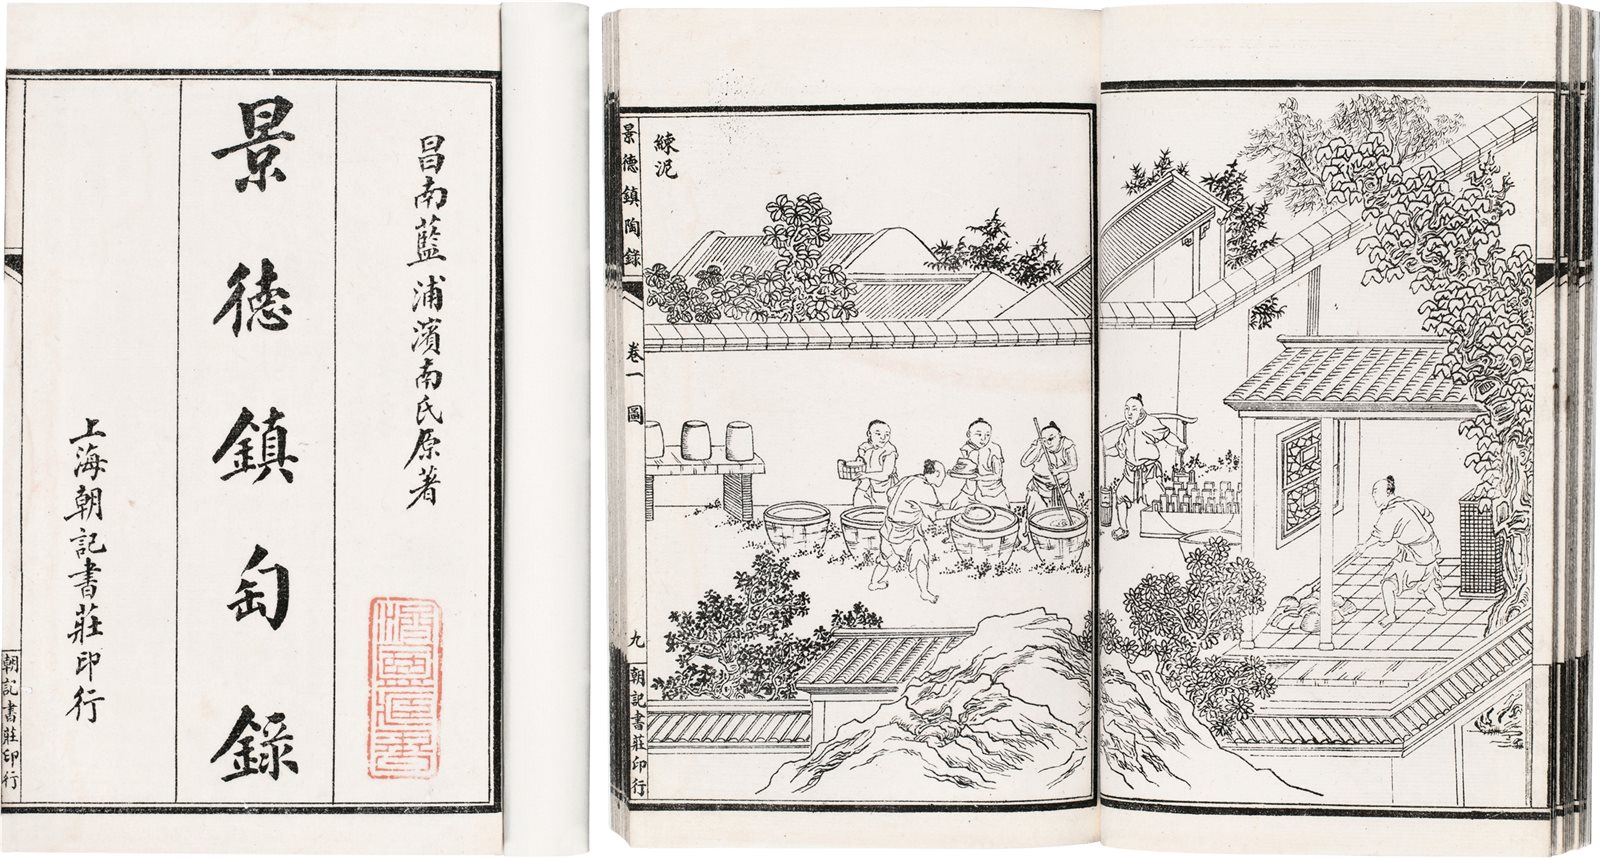 昌南藍浦濱南氏原著
景德鎮匋錄
上海朝記書莊印行
朝記書莊印行
練泥
景德鎮陶錄
卷一
圖
九
朝記書莊印行